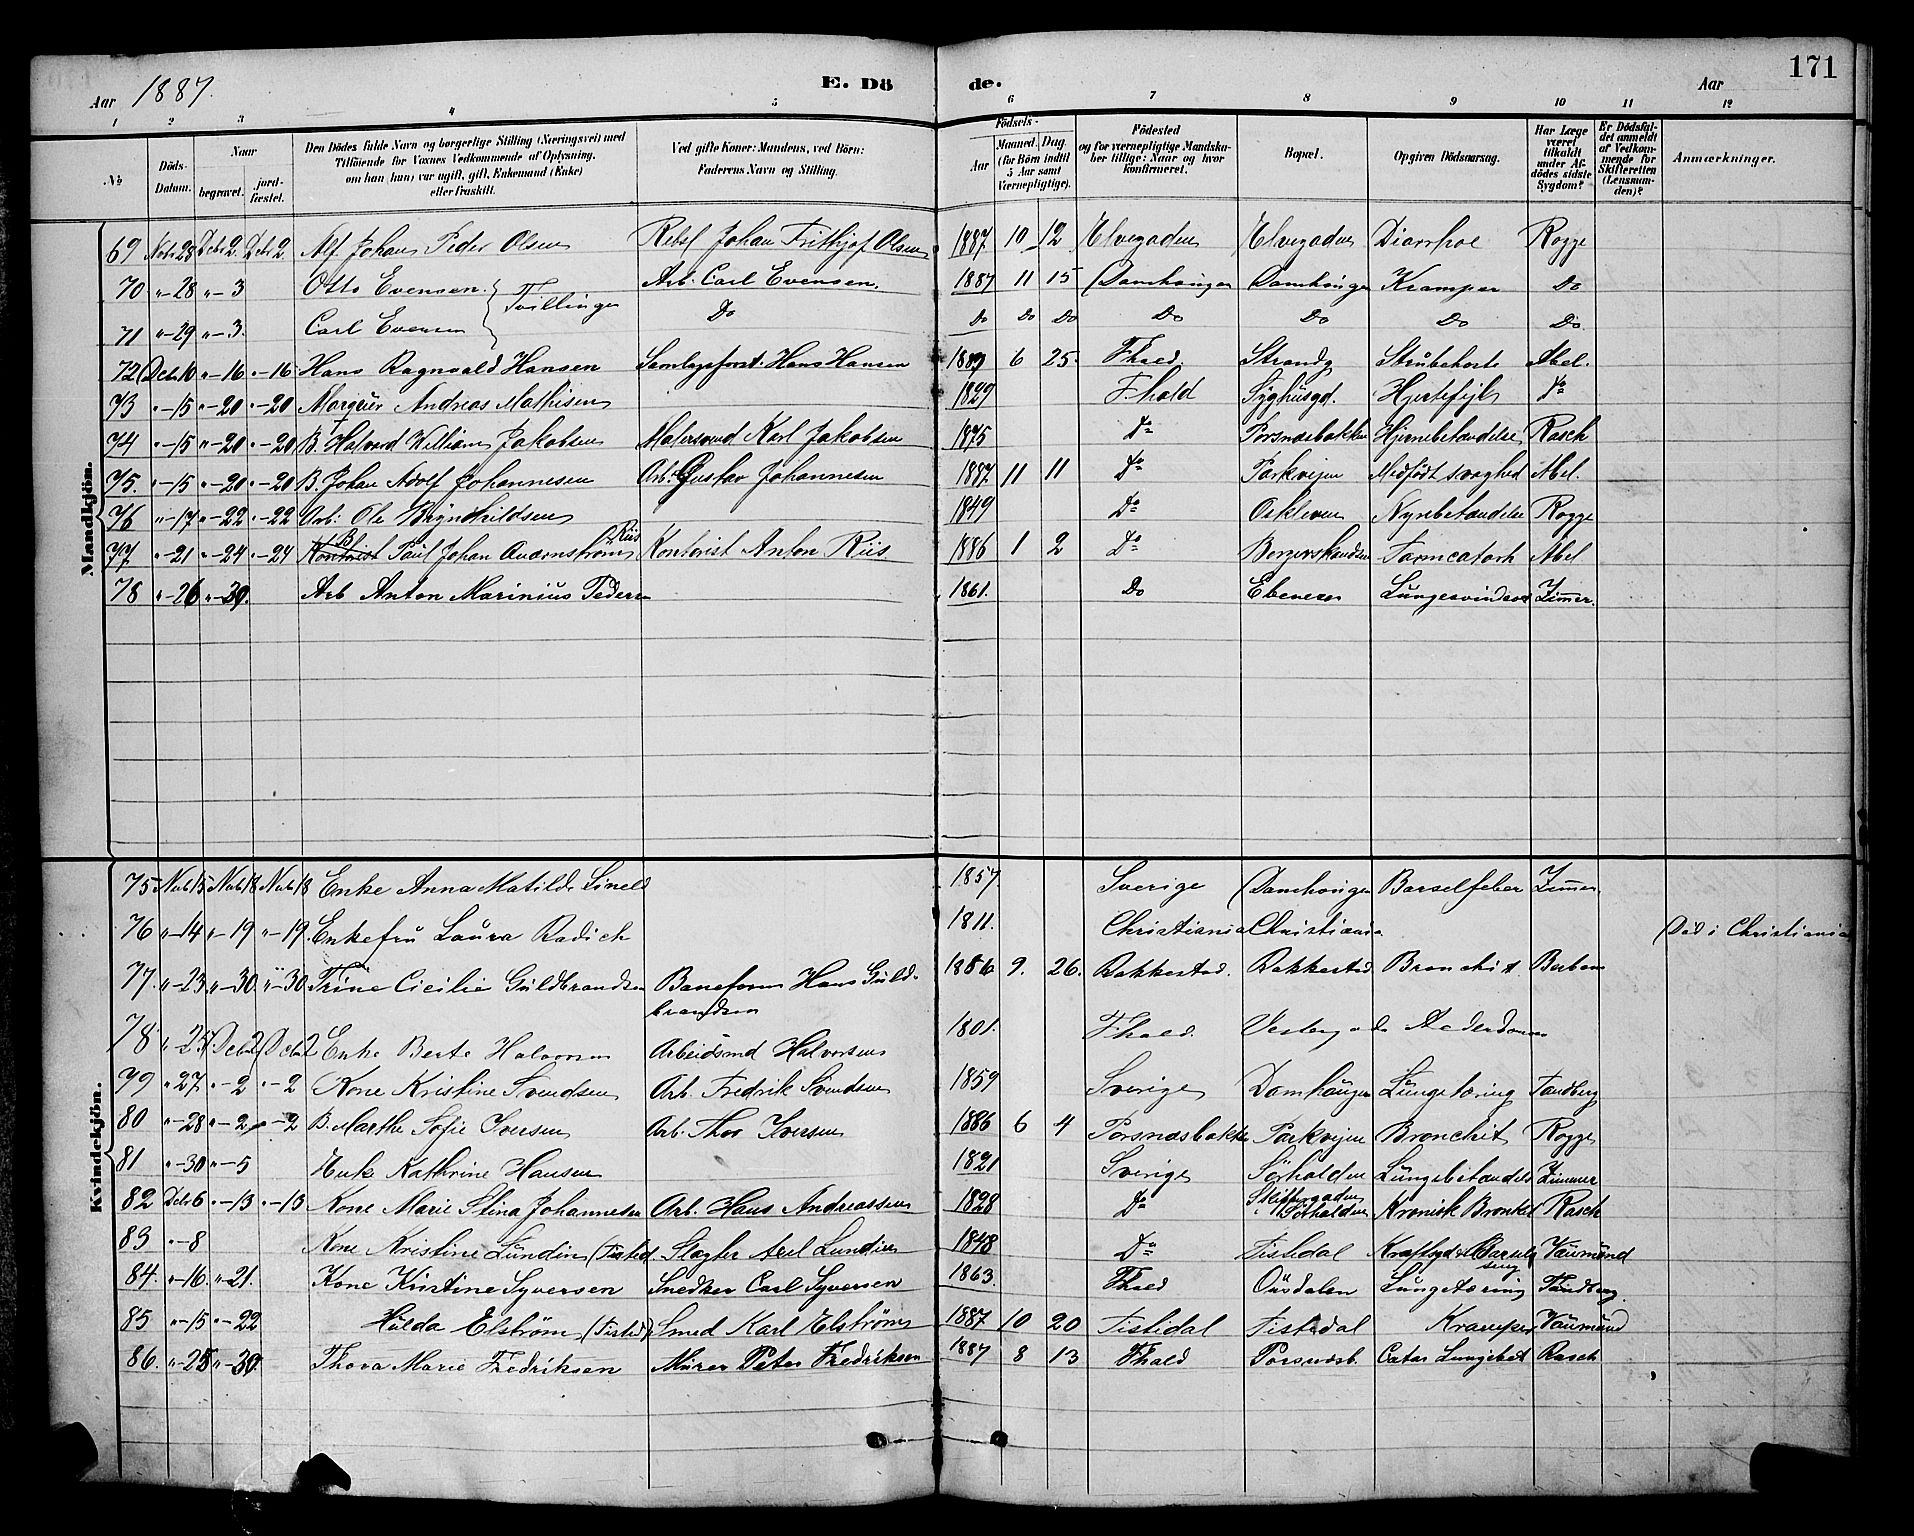 Aar 1887. E. Dö de. Aar 171
1 2 3 4 5 6 7 8 9 10 11 12
No Döds-Datum. Naar begravet. jord-fæstet. Den Dödes fulde Navn og borgerlige Stilling (Næringsvei) med Tilföiende for Voxnes Vedkommende af Oplysning, om han (hun) var ugift, gift, Enkemand (Enke) eller fraskilt. Ved gifte Koner: Mandens, ved Börn: Faderens Navn og Stilling. Födsels- Aar Maaned. Dag. (for Börn indtil 5 Aar samt Værnepligtige). Födested og for værnepligtige Mandskaber tillige: Naar og hvor konfirmeret. Bopæl. Opgiven Dödsaarsag. Har Læge været tilkaldt under Afdödes sidste Sygdom? Er Dödsfaldet anmeldt af Vedkommende for Skifteretten (Lensmanden)? Anmærkninger.
Mandkjön.
69 Novbr 28 Debr 2. Debr 2 Alf Johan Peder Olsen Rebsl Johan Frithjof Olsen 1887 10 12 Elvegaden Elvegaden Diarrhoe Rogge
70 "-28 "-3 Otto Evensen. Tvillinger Arb. Carl Evensen. 1887 11 15 Damhaugen Damhauge Kramper Do
71 "-29 "-3. Carl Evensen Do Do Do Do Do Do Do Do.
72 Debr 10 "-16 "-16 Hans Ragnvald Hansen Samlagsforst. Hans Hansen 6 25 Fhald. Strandg Strubehoste Abel.
73 "-15 "-20 "-20 Andreas Mathisen 1829 Fhald Syghusgd. Hjertefejl Do
74 "-15 "-20 "-20 B. Halvard William Jakobsen Malersvend Karl Jakobsen 1875 Do Porsnæsbakken Hjernebetændelse Rasch
75. "-15 "-20 "-20 B. Johan Adolf Johannesen Arb: Gustav Johannesen 1887 11 11 Do Parkvejen Medfödt svaghed Abel.
76 "-17 "-22 "-22 Arb: Ole Brynhildsen 1849 Do Oskleven Nyrebetændelse Rogge
77 "-21 "-24 "-24 B. Paul Johan Qvarnström Riis Kontorist Anton Riis 1886 1 2 Do Tarmcatarh Abel
78 "-26 "-30. Arb Anton Marinius Peders 1861. Do Ebeneser Lungesvindsot Zimmer.
Kvindekjön.
75 Novb 15 Novb 18 Novb 18 Enke Anna Matilde Linell 1857. Sverige Damhaugen Barselfeber Zimmer
76 "-14 "-19 "-19. Enkefru Laura Radich 1811. Christiania Christiania Död i Christiania
77. "-23 "-30. "-30 Trine Cicilie Guldbrandsen Baneform Hans Guld-
brandsen 1886 9. 26. Rakkestad. Rakkestad Bronchit
78 "-25 Debr 2 Debr 2 Enke Berte Halvorsen Arbeidsmd Halvorsen 1801. Fhald. Vestergade Alderdom
79 "27 "-2 "-2 Kone Kristine Svendsen Arb. Fredrik Svendsen 1859 Sverige Damhaugen Lungetæring Tandberg
80 "-28 "-2 "-2 B. Marthe Sofie Iversen Arb. Thor Iversen 1886 6 4 Porsnæsbakke Parkvejen Bronchit Rogge
81 "-30 "-5 Enke Kathrine Hansen 1821 Sverige Sörhalden Lungebetændels Zimmer
82 Debr 6 "-13 "-13 Kone Marie Stina Johannesen Arb. Hans Andreassen 1828 Do Sörhalden Kronisk Bronkit Rasch
83 "-8 Kone Kristine Lundin (Tisted. Slagter Axel Lundin 1848 Do Tistedal Vaumund
84. "-16. "-21. Kone Kristine Syversen Snedker Carl Syversen 1863. Fhald Ousdalen Lungetæring Tandberg.
85 "-15 "-22 Hulda Elström (Tisted), Smed Karl Elström 1887 10 20 Tistedal Tistedal Kramper Vaumund
86. "-25 "-30. Thora Marie Fredriksen Murer Peter Fredriksen 1887 8 13 Fhald Porsnæsb. Catar Lungebet Rasch